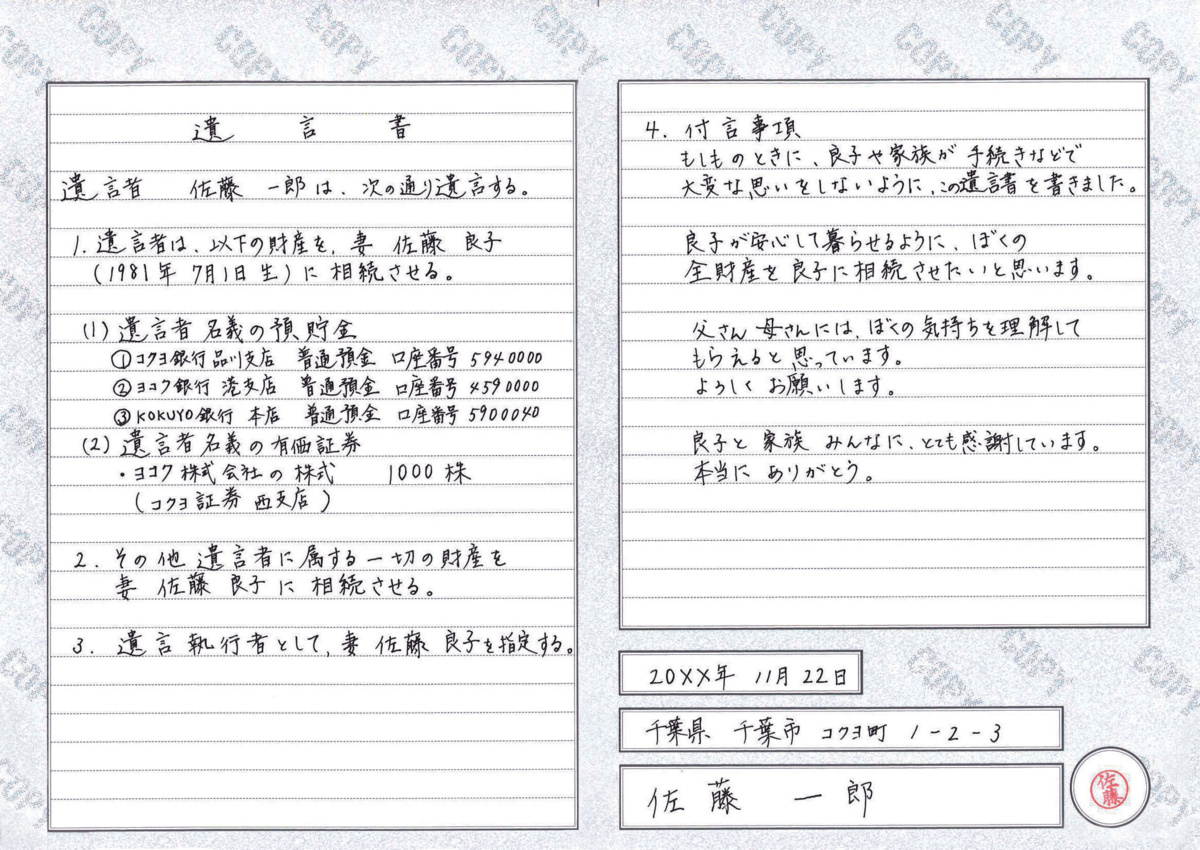 遺言書
遺言者 佐藤 一郎は、次の通り遺言する。
1. 遺言者は、以下の財産を、妻 佐藤 良子
(1981年 7月1日生)に相続させる。
(1) 遺言者名義の預貯金
① コクヨ銀行 品川支店 普通預金 口座番号 5940000
② ヨコク銀行 港支店 普通預金 口座番号 4590000
③ KOKUYO銀行 本店 普通預金 口座番号 5900040
(2) 遺言者名義の有価証券
・ヨコク株式会社の株式 1000株
(コクヨ証券 西支店)
2. その他遺言者に属する一切の財産を
妻 佐藤 良子に相続させる。
3. 遺言執行者として、妻 佐藤 良子を指定する。
4. 付言事項
もしものときに、良子や家族が手続きなどで
大変な思いをしないように、この遺言書を書きました。
良子が安心して暮らせるように、ぼくの
全財産を良子に相続させたいと思います。
父さん 母さんには、ぼくの気持ちを理解して
もらえると思っています。
よろしくお願いします。
良子と家族みんなに、とても感謝しています。
本当にありがとう。
20XX年 11月22日
千葉県 千葉市 コクヨ町 1-2-3
佐藤 一郎
佐藤
COPY COPY COPY COPY COPY COPY COPY COPY COPY COPY COPY